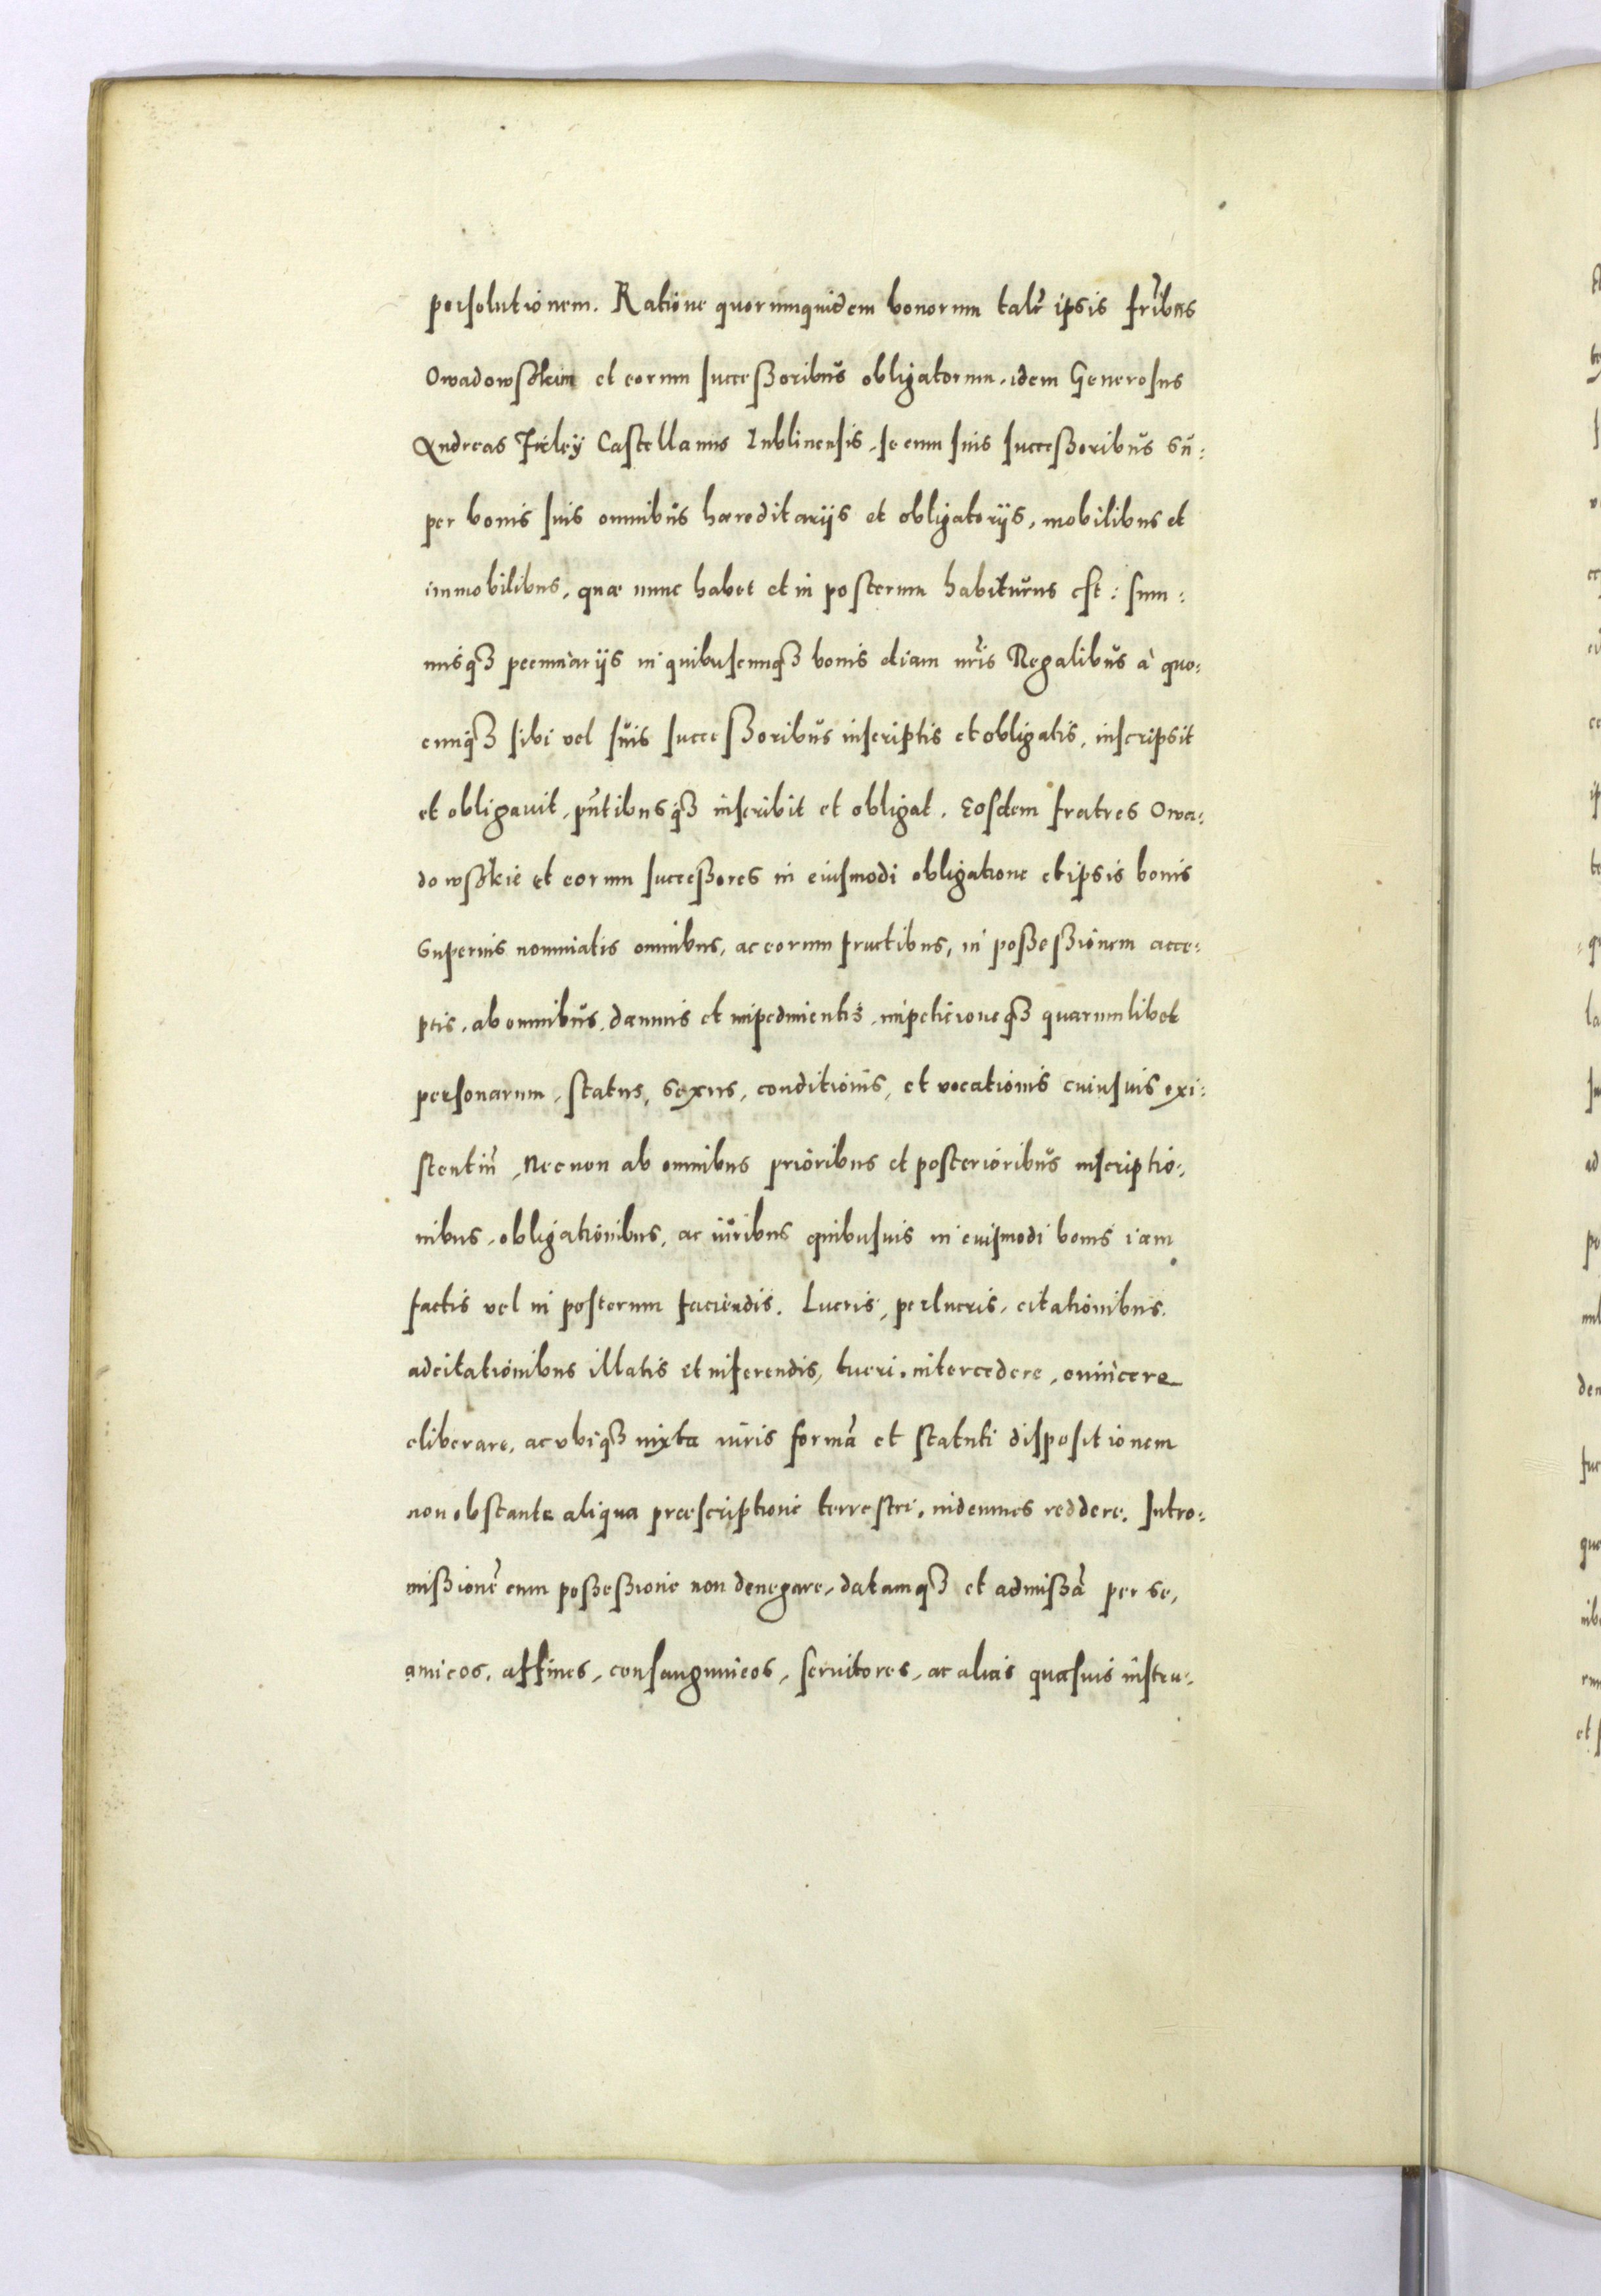 persolutionem. Ratione quorumquidem bonorum talr̃ ipsis fr̃ibus
Owadowsskim et eorum successoribus obligatorum, idem Generosus
Andreas Firley Castellanus Lublinensis, se cum suis successoribus su:
per bonis suis omnibus haereditarijs et obligatorijs, mobilibus et
immobilibus, quae nunc habet et in posterum habiturus est: sum:
misq3 pecuniarijs in quibuscunq3 bonis etiam nr̃is Regalibus à quo:
cunq3 sibi vel suis successoribus inscriptis et obligatis, inscripsit
et obligauit, pñtibusq3 inscribit et obligat. Eosdem fratres Owa:
dowsskie et eorum successores in eiusmodi obligatione et ipsis bonis
superius nominatis omnibus, ac eorum fructibus, in possessionem acce:
ptis, ab omnibus, damnis et impedimentis, impeticioneq3 quarumlibet
personarum, status, sexus, conditionis, et vocationis cuiusuis exi:
stentiũ, Necnon ab omnibus prioribus et posterioribus inscriptio:
nibus, obligationibus, ac iuribus quibusuis in eiusmodi bonis iam
factis vel in posterum faciendis. Lucris, perlucris, citationibus,
adcitationibus illatis et inferendis, tueri, intercedere, euincere
eliberare, ac vbiq3 iuxta iuris formã et statuti dispositionem
non obstante aliqua praescriptione terrestri, indemnes reddere. Intro:
missionẽ cum possessione non denegare, datamq3 et admissã per se,
amicos, affines, consanguineos, seruitores, ac alias quasuis instru: